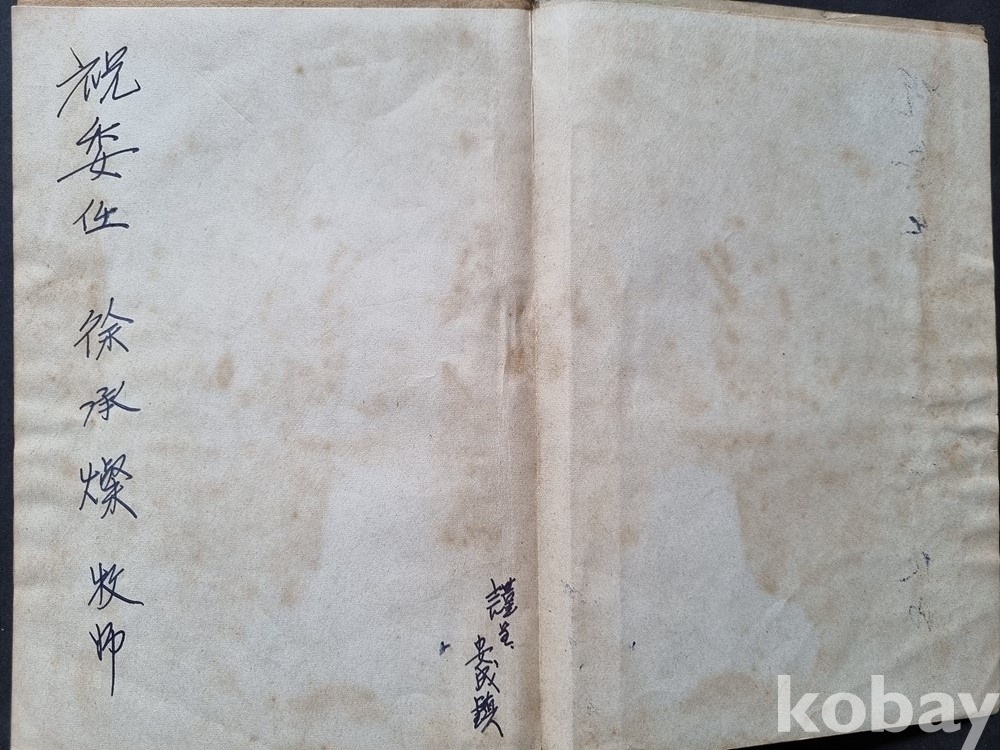 祝委任 徐承燦 牧師
謹呈
安成鎮
kobay